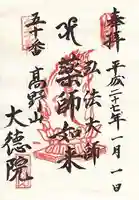 奉拝
平成二十七年一月一日
弘法大師
薬師如来
五十番
高野山
大徳院